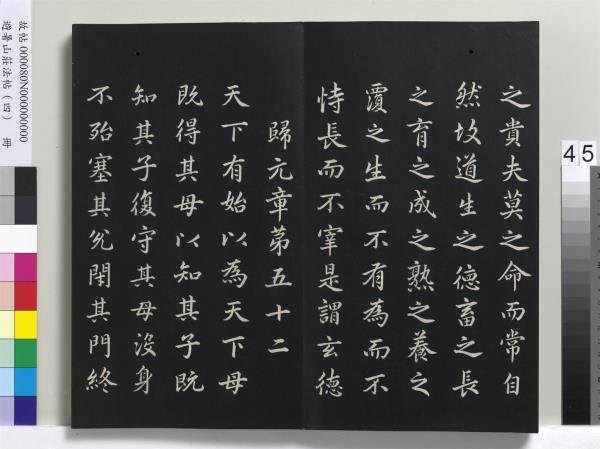 之貴夫莫之命而常自
然故道生之德畜之長
之育之成之熟之養之
覆之生而不有為而不
恃長而不宰是謂玄德
歸元章第五十二
天下有始以為天下母
既得其母以知其子既
知其子復守其母沒身
不殆塞其兌閉其門終
故帖 000080N000000000
避暑山莊法帖（四） 冊
45